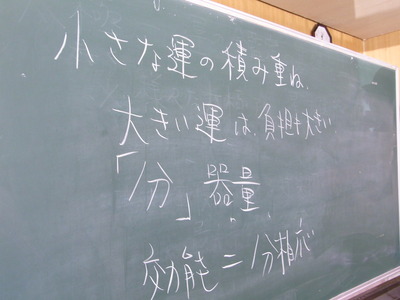 小さな運の積み重ね、
大きい運は、負担も大きい
「分」器量
効能＝分相応